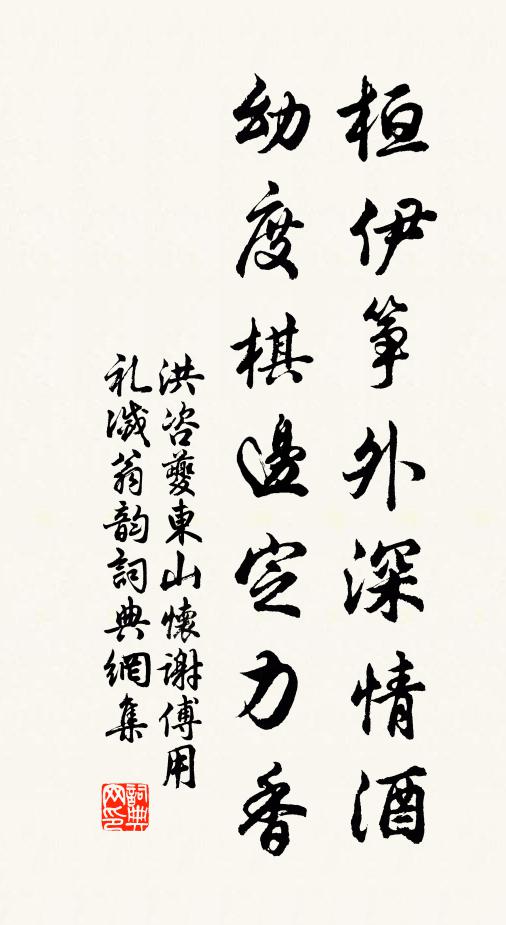 桓伊筝外深情酒
幼度棋邊定力香
洪咨夔東山懷謝傅用
礼瀐翁韵詞典網集
詞典网印